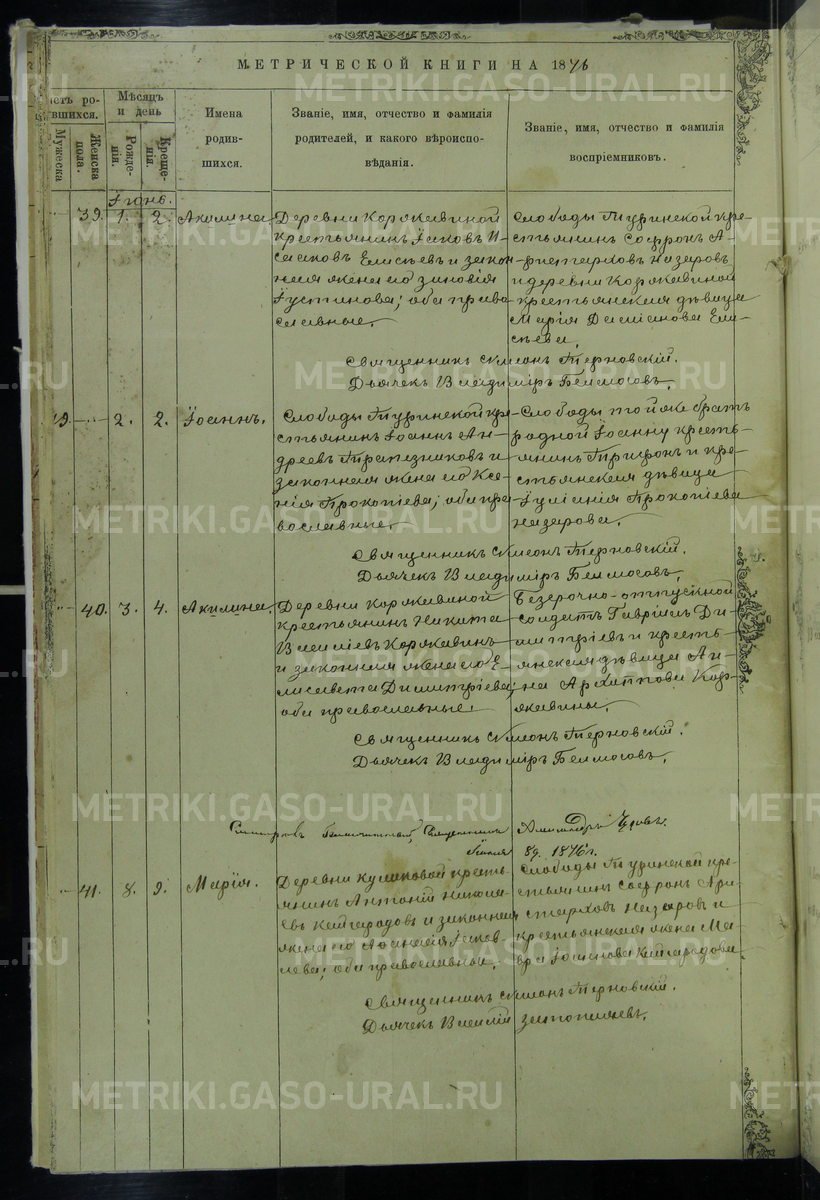 МЕТРИЧЕСКОЙ КНИГИ НА 1876
METRIKI.GASO-URAL.RU
Счетъ родившихся.
Мужеска
Женска пола.
Мѣсяцъ и день
Рожденія.
Крещенія.
Имена родившихся.
Званіе, имя, отчество и фамилія родителей, и какого вѣроисповѣданія.
Званіе, имя, отчество и фамилія воспріемниковъ.
Іюнь.
39. 1. 2. Акилина
Деревни Корякиной
крестьянинъ Іаковъ И-
сааковъ Елисѣевъ и закон-
ная жена его Зиновія
Іустинова; оба право-
славные.
Слободы Туринской кре-
стьянинъ Софронъ А-
ристарховъ Назаровъ
и деревни Корякиной
крестьянская дѣвица
Марія Даміанова Ели-
сѣева.
Священникъ Симеонъ Терновскій.
Дьячекъ Владиміръ Белмосовъ.
19. 2. 2. Іоаннъ.
Слободы Туринской кре-
стьянинъ Іоаннъ Ан-
дреевъ Трапезниковъ и
законная жена его Ксе-
нія Прокопіева; оба пра-
вославные.
Слободы той же братъ
родной Іоанну кресть-
янинъ Трифонъ и кре-
стьянская дѣвица
Іуліанія Прокопіева
Назарова.
Священникъ Симеонъ Терновскій.
Дьячекъ Владиміръ Белмосовъ.
40. 3. 4. Акилина.
Деревни Корякиной
крестьянинъ Никита
Корякинъ
и законная жена его Е-
лисавета Димитріева;
оба православные.
Безсрочно-отпускной
солдатъ Гавріилъ Ди-
митріевъ и кресть-
янская дѣвица Ан-
на Архиппова Кор-
якина.
Священникъ Симеонъ Терновскій.
Дьячекъ Владиміръ Белмосовъ.
Священникъ Александръ
8д. 1876 г.
41. 8. 9. Марія.
Деревни Кулаковой кресть-
янинъ Антоній Никола-
евъ Кайгородовъ и законная
жена его Аѳанасія Іаков-
лева; оба православные.
Слободы Туринской кре-
стьянинъ Софронъ Ари-
старховъ Назаровъ и
крестьянская жена Ма-
вра Іоаннова Кайгородова.
Священникъ Симеонъ Терновскій.
Дьячекъ Василій